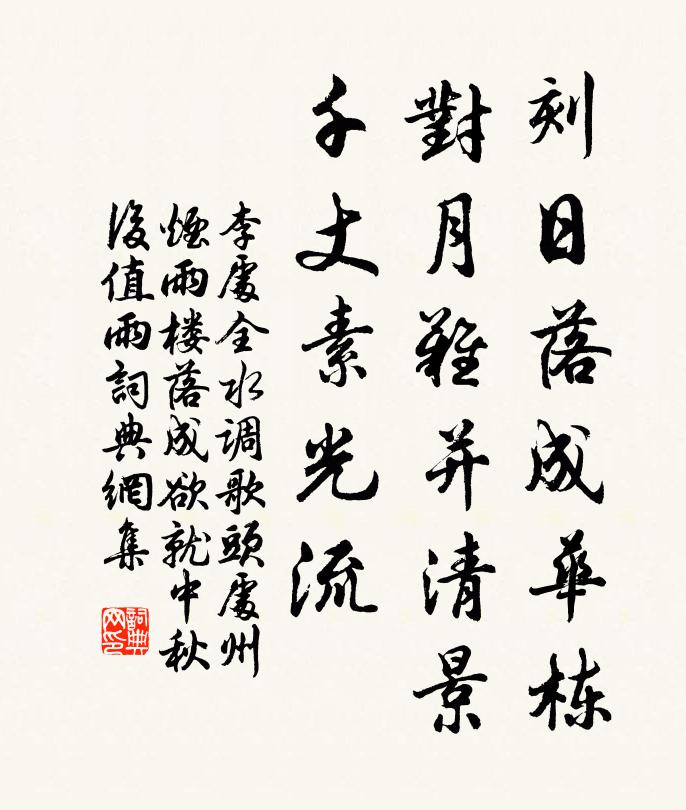 刻日落成華栋
對月難并清景
千丈素光流
李處全水调歌頭處州
煙雨楼落成欲就中秋
後值雨詞典網集
詞典网印